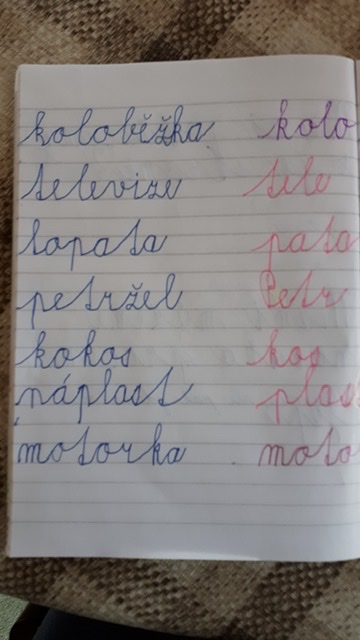 koloběžka kolo
televize tele
lopata pata
petržel Petr
kokos kos
náplast plast
motorka moto